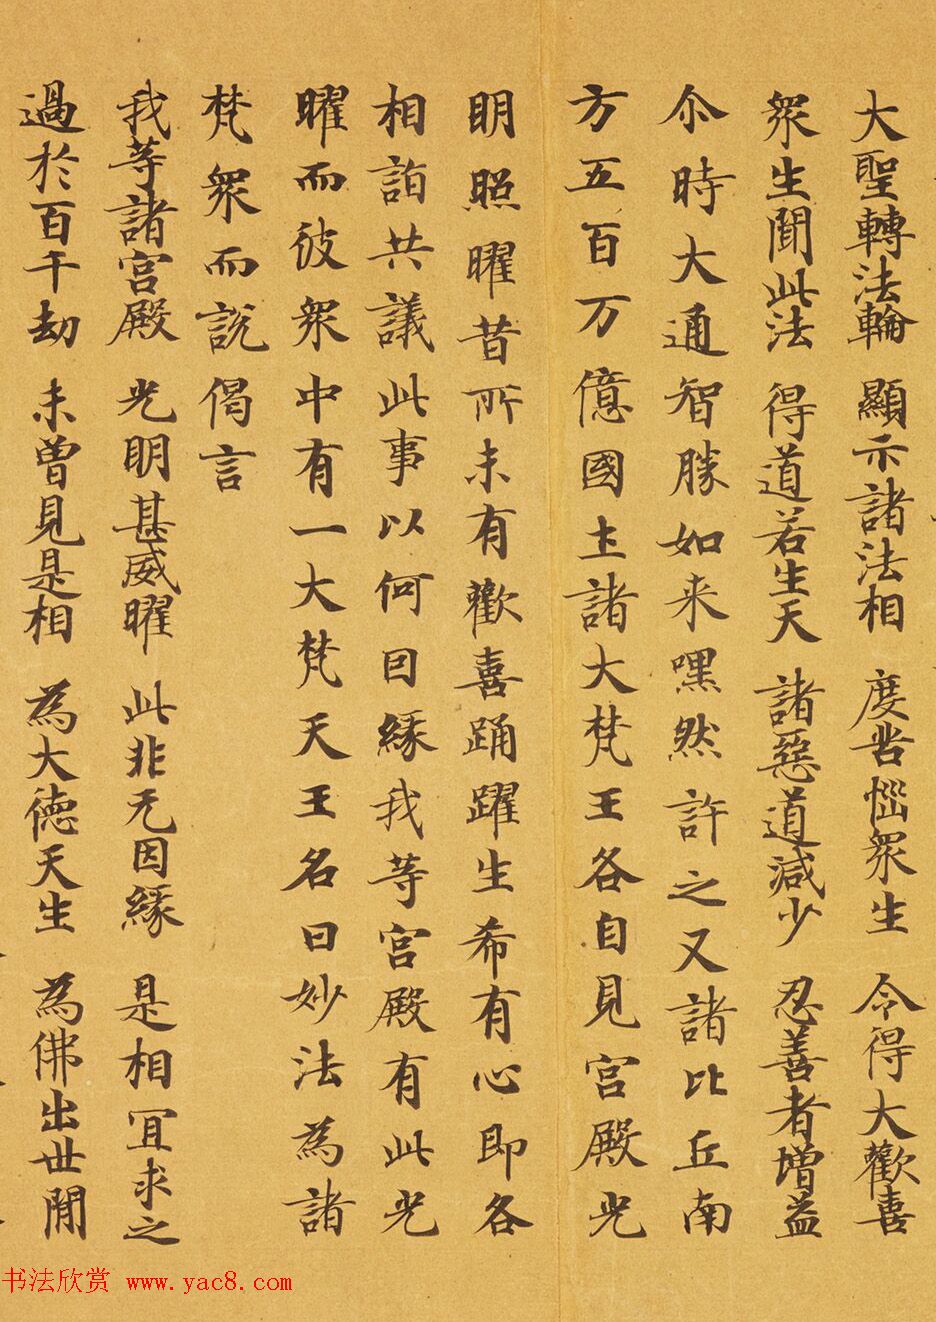 大聖轉法輪 顯示諸法相 度苦惱衆生 令得大歡喜
衆生聞此法 得道若生天 諸惡道減少 忍善者增益
尒時大通智勝如来嘿然許之又諸比丘南
方五百万億國土諸大梵王各自見宮殿光
明照曜昔所未有歡喜踊躍生希有心即各
相詣共議此事以何因緣我等宮殿有此光
曜而彼衆中有一大梵天王名曰妙法為諸
梵衆而說偈言
我等諸宮殿 光明甚威曜 此非无因緣 是相冝求之
過於百千劫 未曾見是相 為大德天生 為佛出世間
书法欣赏 www.yac8.com